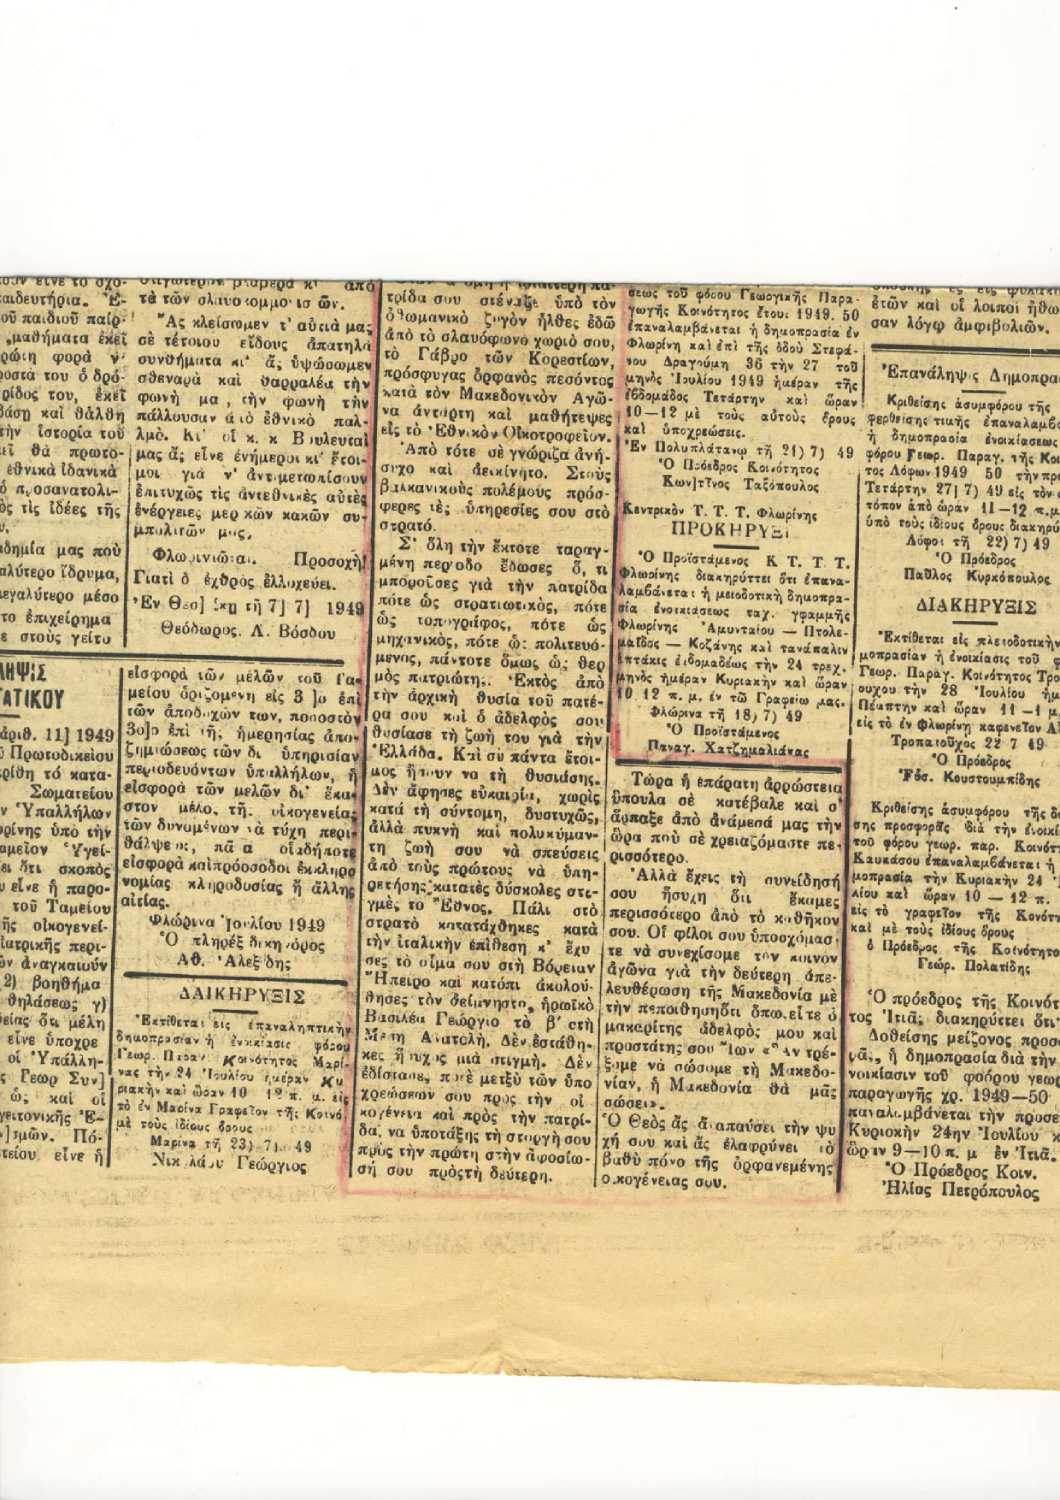 αιδευτήρια. Ἐ-
οῦ παιδιοῦ παίρ-
„μαθήματα ἐκεῖ
ρώτη φορὰ ν'
ροστά του ὁ δρό-
ρίδος του, ἐκεῖ
βάσῃ καὶ θἄλθῃ
τὴν ἱστορία τοῦ
θὰ πρωτο-
ἐθνικὰ ἰδανικὰ
προσανατολι-
ὸς τὶς ἰδέες τῆς
αδημία μας ποὺ
αλύτερο ἵδρυμα,
μεγαλύτερο μέσο
το ἐπιχείρημα
ε στοὺς γείτο
ΛΗΨΙΣ
ΤΑΤΙΚΟΥ
ἀριθ. 11] 1949
Πρωτοδικείου
ρίθη τὸ κατα-
Σωματείου
ν Ὑπαλλήλων
ρίνης ὑπὸ τὴν
αμεῖον Ὑγεί-
ει ὅτι σκοπὸς
υ εἶνε ἡ παρο-
τοῦ Ταμείου
ῆς οἰκογενεί-
ἰατρικῆς περι-
ῶν ἀναγκαιούν
2) βοηθήμα
θηλάσεως γ)
είας ὅτι μέλη
εἶνε ὑποχρε
οἱ Ὑπάλλη-
ς Γεωρ Συν]
ώς καὶ οἱ
γειτονικῆς Ἐ-
ν]σμῶν. Πό-
τείου εἶνε ἡ
τὰ τῶν
Ἂς κλείσωμεν τ' αὐτιά μας
σὲ τέτοιου εἴδους ἀπατηλὰ
συνθήματα κι' ἄς ὑψώσωμεν
σθεναρὰ καὶ θαρραλέα τὴν
φωνή μα , τὴν φωνὴ τὴν
πάλλουσαν ἀπὸ ἐθνικὸ παλ-
μό. Κι' οἱ κ. κ Βουλευταί
μας ἄς εἶνε ἐνήμεροι κι' ἕτοι-
μοι γιὰ ν' ἀντιμετωπίσουν
ἐπιτυχῶς τὶς ἀντεθνικὲς αὐτὲς
ἐνέργειες μερικῶν κακῶν συ-
μπολιτῶν μας.
Φλωρινιῶται. Προσοχή!
Γιατὶ ὁ ἐχθρὸς ἐλλοχεύει.
Ἐν Θεσ] ίκῃ τῇ 7] 7] 1949
Θεόδωρος. Λ. Βόσδου
εἰσφορὰ τῶν μελῶν τοῦ Τα-
μείου ὁριζομένη εἰς 3 ]ο ἐπὶ
τῶν ἀποδοχῶν των, ποσοστὸν
3ο]ο ἐπὶ τῆς ἡμερησίας ἀπο-
ζημιώσεως τῶν δι ὑπηρεσίαν
περιοδευόντων ὑπαλλήλων, ἡ
εἰσφορὰ τῶν μελῶν δι' ἕκα-
στον μέλος τῆς οἰκογενείας
τῶν δυναμένων νὰ τύχῃ περι-
θάλψεως, πᾶσα οἱαδήποτε
εἰσφορὰ καὶ πρόσοδοι ἐκ κληρο
νομίας κληροδοσίας ἢ ἄλλης
αἰτίας.
Φλώρινα Ἰουλίου 1949
Ὁ πληρεξ δικηγόρος
Αθ. Ἀλεξίδης
ΔΑΙΚΗΡΥΞΙΣ
Ἐκτίθεται εἰς ἐπαναληπτικὴν
δημοπρασίαν ἡ ἐνοικίασις φόρου
Γεωρ. Παραγ Κοινότητος Μαρί-
νας τὴν 24 Ἰουλίου ἡμέραν Κυ
ριακὴν καὶ ὥραν 10 12 π. μ. εἰς
τὸ ἐν Μαρίνᾳ Γραφεῖον τῆς Κοινό-
μὲ τοὺς ἰδίους ὅρους
Μαρίνα τῇ 23) 7) 49
Νικολάου Γεώργιος
τρίδα σου στέναζε ὑπὸ τὸν
ὀθωμανικὸ ζυγὸν ἦλθες ἐδῶ
ἀπὸ τὸ σλαυόφωνο χωριό σου,
τὸ Γάβρο τῶν Κορεστίων,
πρόσφυγας ὀρφανὸς πεσόντος
κατὰ τὸν Μακεδονικὸν Ἀγῶ-
να ἀντάρτη καὶ μαθήτεψες
εἰς τὸ Ἐθνικὸν Οἰκοτροφεῖον.
Ἀπὸ τότε σὲ γνώριζα ἀνή-
συχο καὶ ἀεικίνητο. Στοὺς
βαλκανικοὺς πολέμους πρόσ-
φερες τὲς ὑπηρεσίες σου στὸ
στρατό.
Σ' ὅλη τὴν ἔκτοτε ταραγ-
μένη περίοδο ἔδωσες ὅ, τι
μποροῦσες γιὰ τὴν πατρίδα
πότε ὡς στρατιωτικός, πότε
ὡς τοπογράφος, πότε ὡς
μηχανικός, πότε ὡς πολιτευό-
μενος, πάντοτε ὅμως ὡς θερ
μὸς πατριώτης. Ἐκτὸς ἀπὸ
τὴν ἀρχικὴ θυσία τοῦ πατέ-
ρα σου καὶ ὁ ἀδελφός σου
θυσίασε τὴ ζωή του γιὰ τὴν
Ἑλλάδα. Καὶ σὺ πάντα ἕτοι-
μος ἤσουν νὰ τὴ θυσιάσῃς.
Δὲν ἄφησες εὐκαιρία, χωρὶς
κατὰ τὴ σύντομη, δυστυχῶς,
ἀλλὰ πυκνὴ καὶ πολυκύμαν-
τη ζωή σου νὰ σπεύσεις
ἀπὸ τοὺς πρώτους νὰ ὑπη-
ρετήσης κατὰ τὲς δύσκολες στι-
γμὲς τὸ Ἔθνος. Πάλι στὸ
στρατὸ κατατάχθηκες κατὰ
τὴν ἰταλικὴν ἐπίθεση κ' ἔχυ
σες τὸ αἷμα σου στὴ Βόρειαν
Ἤπειρο καὶ κατόπι ἀκολού-
θησες τὸν ἀείμνηστο, ἡρωϊκὸ
Βασιλέα Γεώργιο τὸ β' στὴ
Μέση Ἀνατολή. Δὲν ἐστάθη-
κες ἥσυχος μιὰ στιγμή. Δὲν
ἐδίστασες ποτὲ μεταξὺ τῶν ὑπο
χρεώσεών σου πρὸς τὴν οἰ
κογένεια καὶ πρὸς τὴν πατρί-
δα, νὰ ὑποτάξης τὴ στοργή σου
πρὸς τὴν πρώτη στὴν ἀφοσίω-
σή σου πρὸς τὴ δεύτερη.
σεως τοῦ φόρου Γεωργικῆς Παρα-
γωγῆς Κοινότητος ἔτους 1949. 50
ἐπαναλαμβάνεται ἡ δημοπρασία ἐν
Φλωρίνῃ καὶ ἐπὶ τῆς ὁδοῦ Στεφά-
νου Δραγούμη 36 τὴν 27 τοῦ
μηνὸς Ἰουλίου 1949 ἡμέραν τῆς
ἑβδομάδος Τετάρτην καὶ ὥραν
10—12 μὲ τοὺς αὐτοὺς ὅρους
καὶ ὑποχρεώσεις.
Ἐν Πολυπλάτανῳ τῇ 21) 7) 49
Ὁ Πρόεδρος Κοινότητος
Κων]τῖνος Ταξόπουλος
Κεντρικὸν Τ. Τ. Τ. Φλωρίνης
ΠΡΟΚΗΡΥΞΙ
Ὁ Προϊστάμενος Κ Τ. Τ. Τ.
Φλωρίνης διακηρύττει ὅτι ἐπανα-
λαμβάνεται ἡ μειοδοτικὴ δημοπρα-
σία ἐνοικιάσεως ταχ. γραμμῆς
Φλωρίνης Ἀμυνταίου — Πτολε-
μαΐδος — Κοζάνης καὶ τανάπαλιν
ἑπτάκις ἑβδομαδέως τὴν 24 τρεχ.
μηνὸς ἡμέραν Κυριακὴν καὶ ὥραν
10 12 π. μ. ἐν τῷ Γραφείῳ μας.
Φλώρινα τῇ 18) 7) 49
Ὁ Προϊστάμενος
Παναγ. Χατζημαλιάκας
Τώρα ἡ ἐπάρατη ἀρρώστεια
ὕπουλα σὲ κατέβαλε καὶ σ'
ἅρπαξε ἀπὸ ἀνάμεσά μας τὴν
ὥρα ποὺ σὲ χρειαζόμαστε πε-
ρισσότερο.
Ἀλλὰ ἔχεις τὴ συνείδησή
σου ἥσυχη ὅτι ἔκαμες
περισσότερο ἀπὸ τὸ καθῆκον
σου. Οἱ φίλοι σου ὑποσχόμασ
τε νὰ συνεχίσομε τὸν κοινὸν
ἀγῶνα γιὰ τὴν δεύτερη ἀπε-
λευθέρωση τῆς Μακεδονία μὲ
τὴν πεποίθηση ὅτι ὅπως εἶπε ὁ
μακαρίτης ἀδελφός μου καὶ
προστάτης σου Ἴων «Ἂν τρέ-
ξομε νὰ σώσομε τὴ Μακεδο-
νίαν, ἡ Μακεδονία θὰ μᾶς
σώσει».
Ὁ Θεὸς ἂς ἀναπαύσει τὴν ψυ
χή σου καὶ ἂς ἐλαφρύνει τὸ
βαθὺ πόνο τῆς ὀρφανεμένης
οἰκογένειας σου.
ἐτῶν καὶ οἱ λοιποὶ ἠθω
σαν λόγῳ ἀμφιβολιῶν.
Ἐπανάληψις Δημοπρα
Κριθείσης ἀσυμφόρου τῆς
φερθείσης τιμῆς ἐπαναλαμβ
ἡ δημοπρασία ἐνοικιάσεως
φόρου Γεωρ. Παραγ. τῆς Κοι
τος Λόφων 1949 50 τὴν προ
Τετάρτην 27) 7) 49 εἰς τὸν
τόπον ἀπὸ ὥραν 11—12 π.μ
ὑπὸ τοὺς ἰδίους ὅρους διακηρύ
Λόφοι τῇ 22) 7) 49
Ὁ Πρόεδρος
Παῦλος Κυρκόπουλος
ΔΙΑΚΗΡΥΞΙΣ
Ἐκτίθεται εἰς πλειοδοτικὴν
μοπρασίαν ἡ ἐνοικίασις τοῦ φ
Γεωρ. Παραγ. Κοινότητος Τρο
ουχου τὴν 28 Ἰουλίου ἡμ
Πέμπτην καὶ ὥραν 11—1 μ.
εἰς τὸ ἐν Φλωρίνῃ καφενεῖον Α
Τροπαιοῦχος 22 7 49
Ὁ Πρόεδρος
Φωσ. Κουστουμπίδης
Κριθείσης ἀσυμφόρου τῆς δο
σης προσφορᾶς διὰ τὴν ἐνοικι
τοῦ φόρου γεωρ. παρ. Κοινότ
Καυκάσου ἐπαναλαμβάνεται ἡ
μοπρασία τὴν Κυριακὴν 24
λίου καὶ ὥραν 10 — 12 π.
εἰς τὸ γραφεῖον τῆς Κονότ
καὶ μὲ τοὺς ἰδίους ὅρους
ὁ Πρόεδρος τῆς Κοινότητο
Γεώρ. Πολατίδης
Ὁ πρόεδρος τῆς Κοινότ
τος Ἰτιᾶς διακηρύττει ὅτι
Δοθείσης μείζονος προσ
ρᾶς, ἡ δημοπρασία διὰ τὴν
νοικίασιν τοῦ φόρου γεωρ
παραγωγῆς χρ. 1949—50
παναλαμβάνεται τὴν προσε
Κυριακὴν 24ην Ἰουλίου κ
ὥραν 9—10 π. μ ἐν Ἰτιᾷ.
Ὁ Πρόεδρος Κοιν.
Ἠλίας Πετρόπουλος